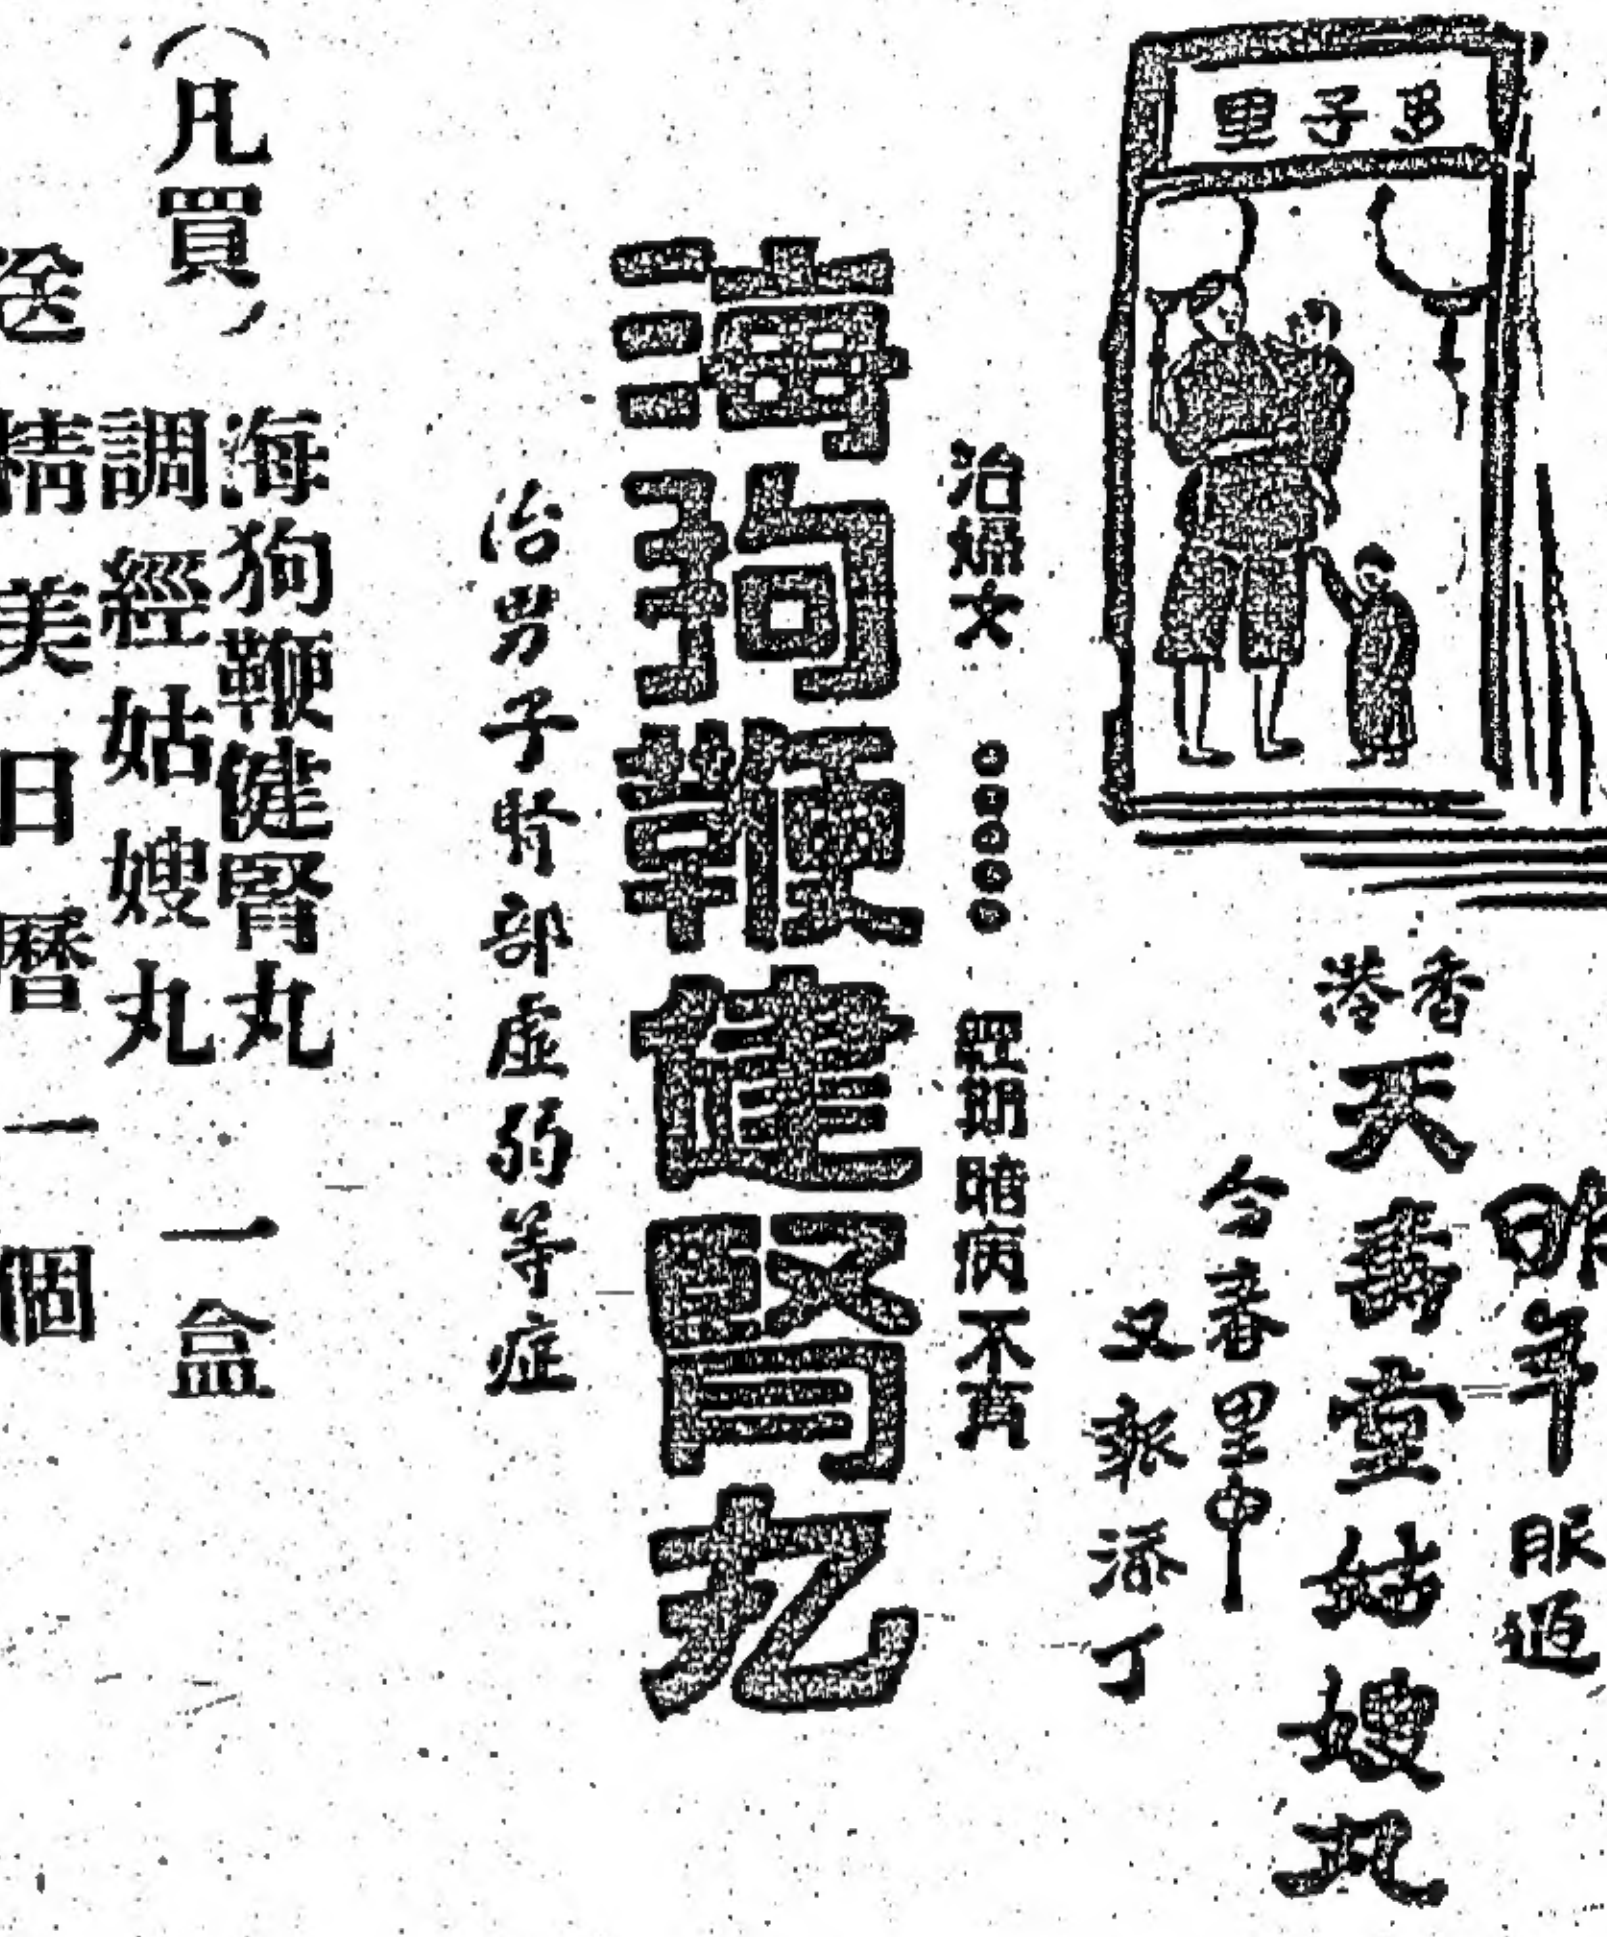 多子里
昨年服過
香港天壽堂姑嫂丸
今春里中
又報添丁
治婦女 經期暗病不育
海狗鞭健腎丸
治男子腎部虛弱等症
(凡買)
海狗鞭健腎丸
調經姑嫂丸
一盒
送精美日曆一個